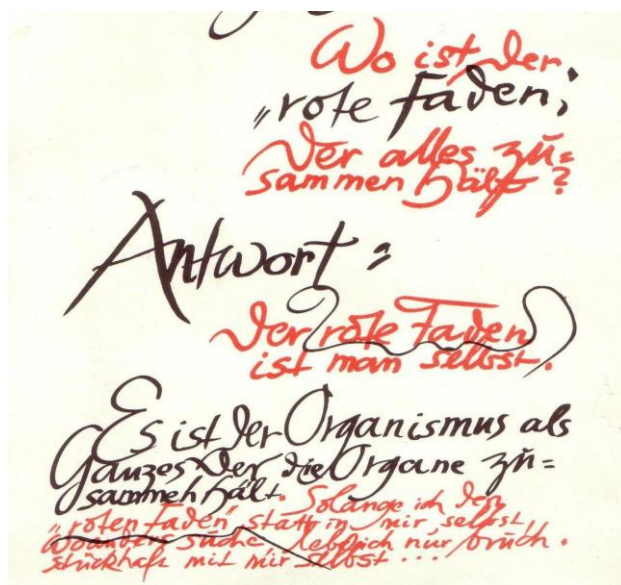 Wo ist der
„rote Faden",
der alles zu=
sammen hält?
Antwort =
Der rote Faden
ist man selbst.
Es ist der Organismus als
Ganzes der die Organe zu=
sammen hält. Solange ich den
„roten Faden" statt in mir selbst
woanders suche lebe ich nur bruch=
stückhaft mit mir selbst ...